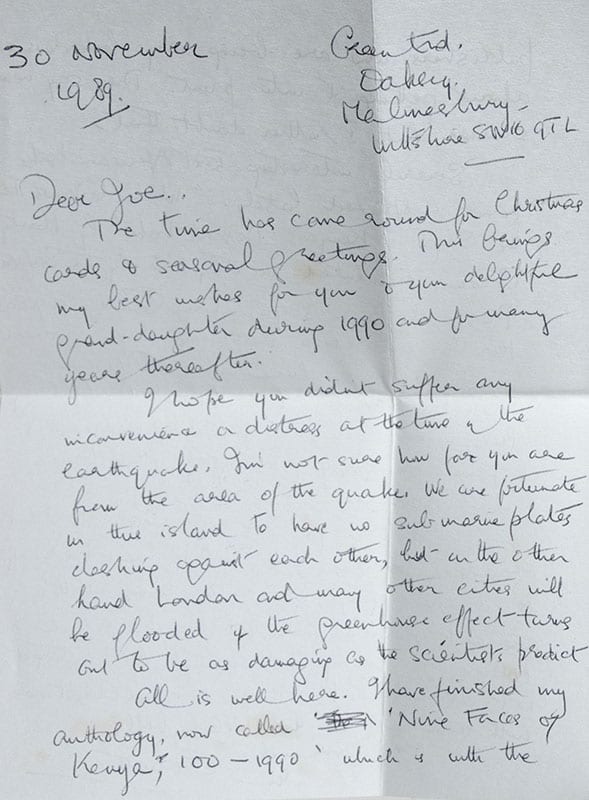 30 November
1989.
Oaksey,
Malmesbury
Wiltshire SN16 9TL
Dear Joe..
The time has come round for Christmas
cards & seasonal greetings. This brings
my best wishes for you & your delightful
grand-daughter during 1990 and for many
years thereafter.
I hope you didn't suffer any
inconvenience or distress at the time of the
earthquake. I'm not sure how far you are
from the area of the quake. We are fortunate
in this island to have no submarine plates
clashing against each other, but on the other
hand London and many other cities will
be flooded if the greenhouse effect turns
out to be as damaging as the scientists predict
All is well here. I have finished my
anthology, now called 'Nine Faces of
Kenya, 100 – 1990' which is with the